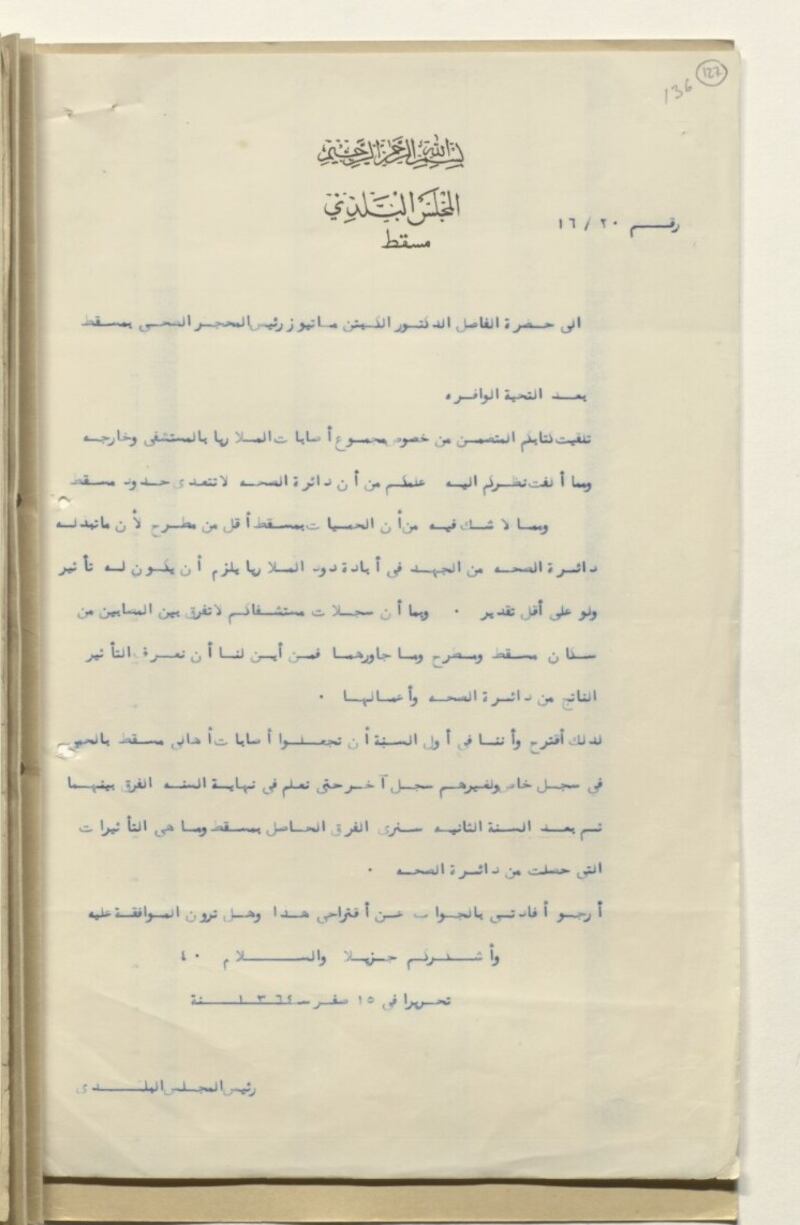 127
136
بسم الله الرحمن الرحيم
المجلس البلدي
مسقط
رقم ٢٠ / ١٦
الى حضرة الفاضل الدكتور الكبتن ماتيوز رئيس المحجر الصحى بمسقط
بعد التحية الوافره
تلقيت كتابكم المتضمن من خصوص مجموع أصابات الملاريا بالمستشفى وخارجه
ومما ألفت نظركم اليه علمكم من أن دائرة الصحه لاتتعدى حدود مسقط
ومما لا شك فيه من أن الحميات بمسقط أقل من مطرح لأن ماتبذله
دائرة الصحه من الجهد فى أبادة دود الملاريا يلزم أن يكون له تأثير
ولو على أقل تقدير . وبما أن سجلات مستشفاكم لاتفرق بين المصابين من
سكان مسقط ومطرح وما جاورهما فمن أين لنا أن نعرف التأثير
الناتج من دائرة الصحه وأعمالها .
لذلك أقترح وأننا فى أول السنة أن تجعلوا أصابات أهالى مسقط بالحمى
فى سجل خاص ولغيرهم سجل آخر حتى نعلم فى نهاية السنه الفرق بينهما
ثم بعد السنة الثانيه سنرى الفرق الحاصل بمسقط وما هى التأثيرات
التى حصلت من دائرة الصحه .
أرجو أفادتى بالجواب عن أقتراحى هذا وهل ترون الموافقة عليه
وأشكركم جزيلا والسلام ٤٠
تحريرا فى ١٥ صفر سنة ١٣٦٤
رئيس المجلس البلدى